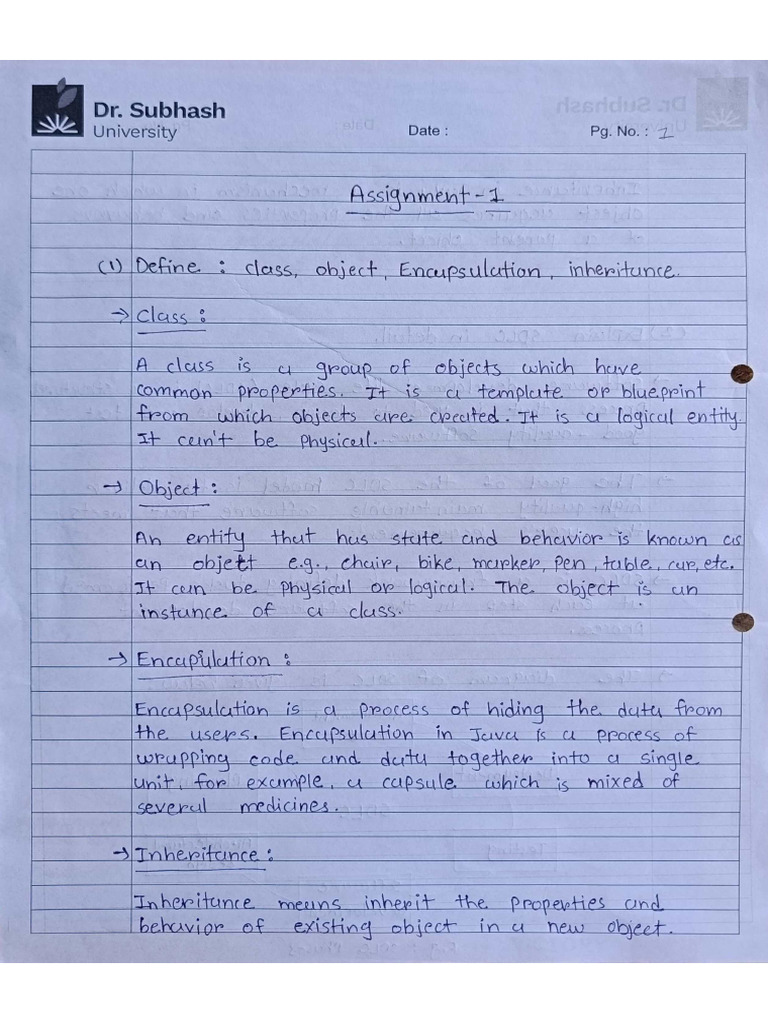 Dr. Subhash
University
Date :
Pg. No. : 1
Assignment - 1
(1) Define : class, object, Encapsulation, inheritance.
→ Class :
A class is a group of objects which have
common properties. It is a template or blueprint
from which objects are created. It is a logical entity.
It can't be Physical.
→ Object :
An entity that has state and behavior is known as
an object e.g., chair, bike, marker, pen, table, car, etc.
It can be physical or logical. The object is an
instance of a class.
→ Encapulation :
Encapsulation is a process of hiding the data from
the users. Encapsulation in Java is a process of
wrapping code and data together into a single
unit, for example, a capsule which is mixed of
several medicines.
→ Inheritance :
Inheritance means inherit the properties and
behavior of existing object in a new object.